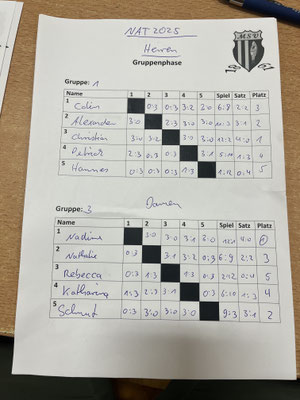 NAT 2025
Herren
Gruppenphase
MSV
Gruppe: 1
Name 1 2 3 4 5 Spiel Satz Platz
1 Colin 0:3 0:3 3:2 3:0 6:8 2:2 3
2 Alexander 3:0 2:3 3:0 3:0 3:1 2
3 Christian 3:0 3:2 3:0 3:0 12:2 4:0 1
4 2:3 0:3 0:3 3:1 1:3 4
5 Hannes 0:3 0:3 0:3 1:3 1:12 0:4 5
Damen
Gruppe: 3
Name 1 2 3 4 5 Spiel Satz Platz
1 Nadine 3:0 3:0 3:1 4:0 1
2 Nathalie 0:3 3:1 3:2 0:3 2:2 3
3 Rebecca 0:3 1:3 1:3 0:3 2:12 0:4 5
4 Katharina 1:3 2:3 3:1 0:3 6:10 1:3 4
5 0:3 3:0 3:0 3:0 9:3 3:1 2